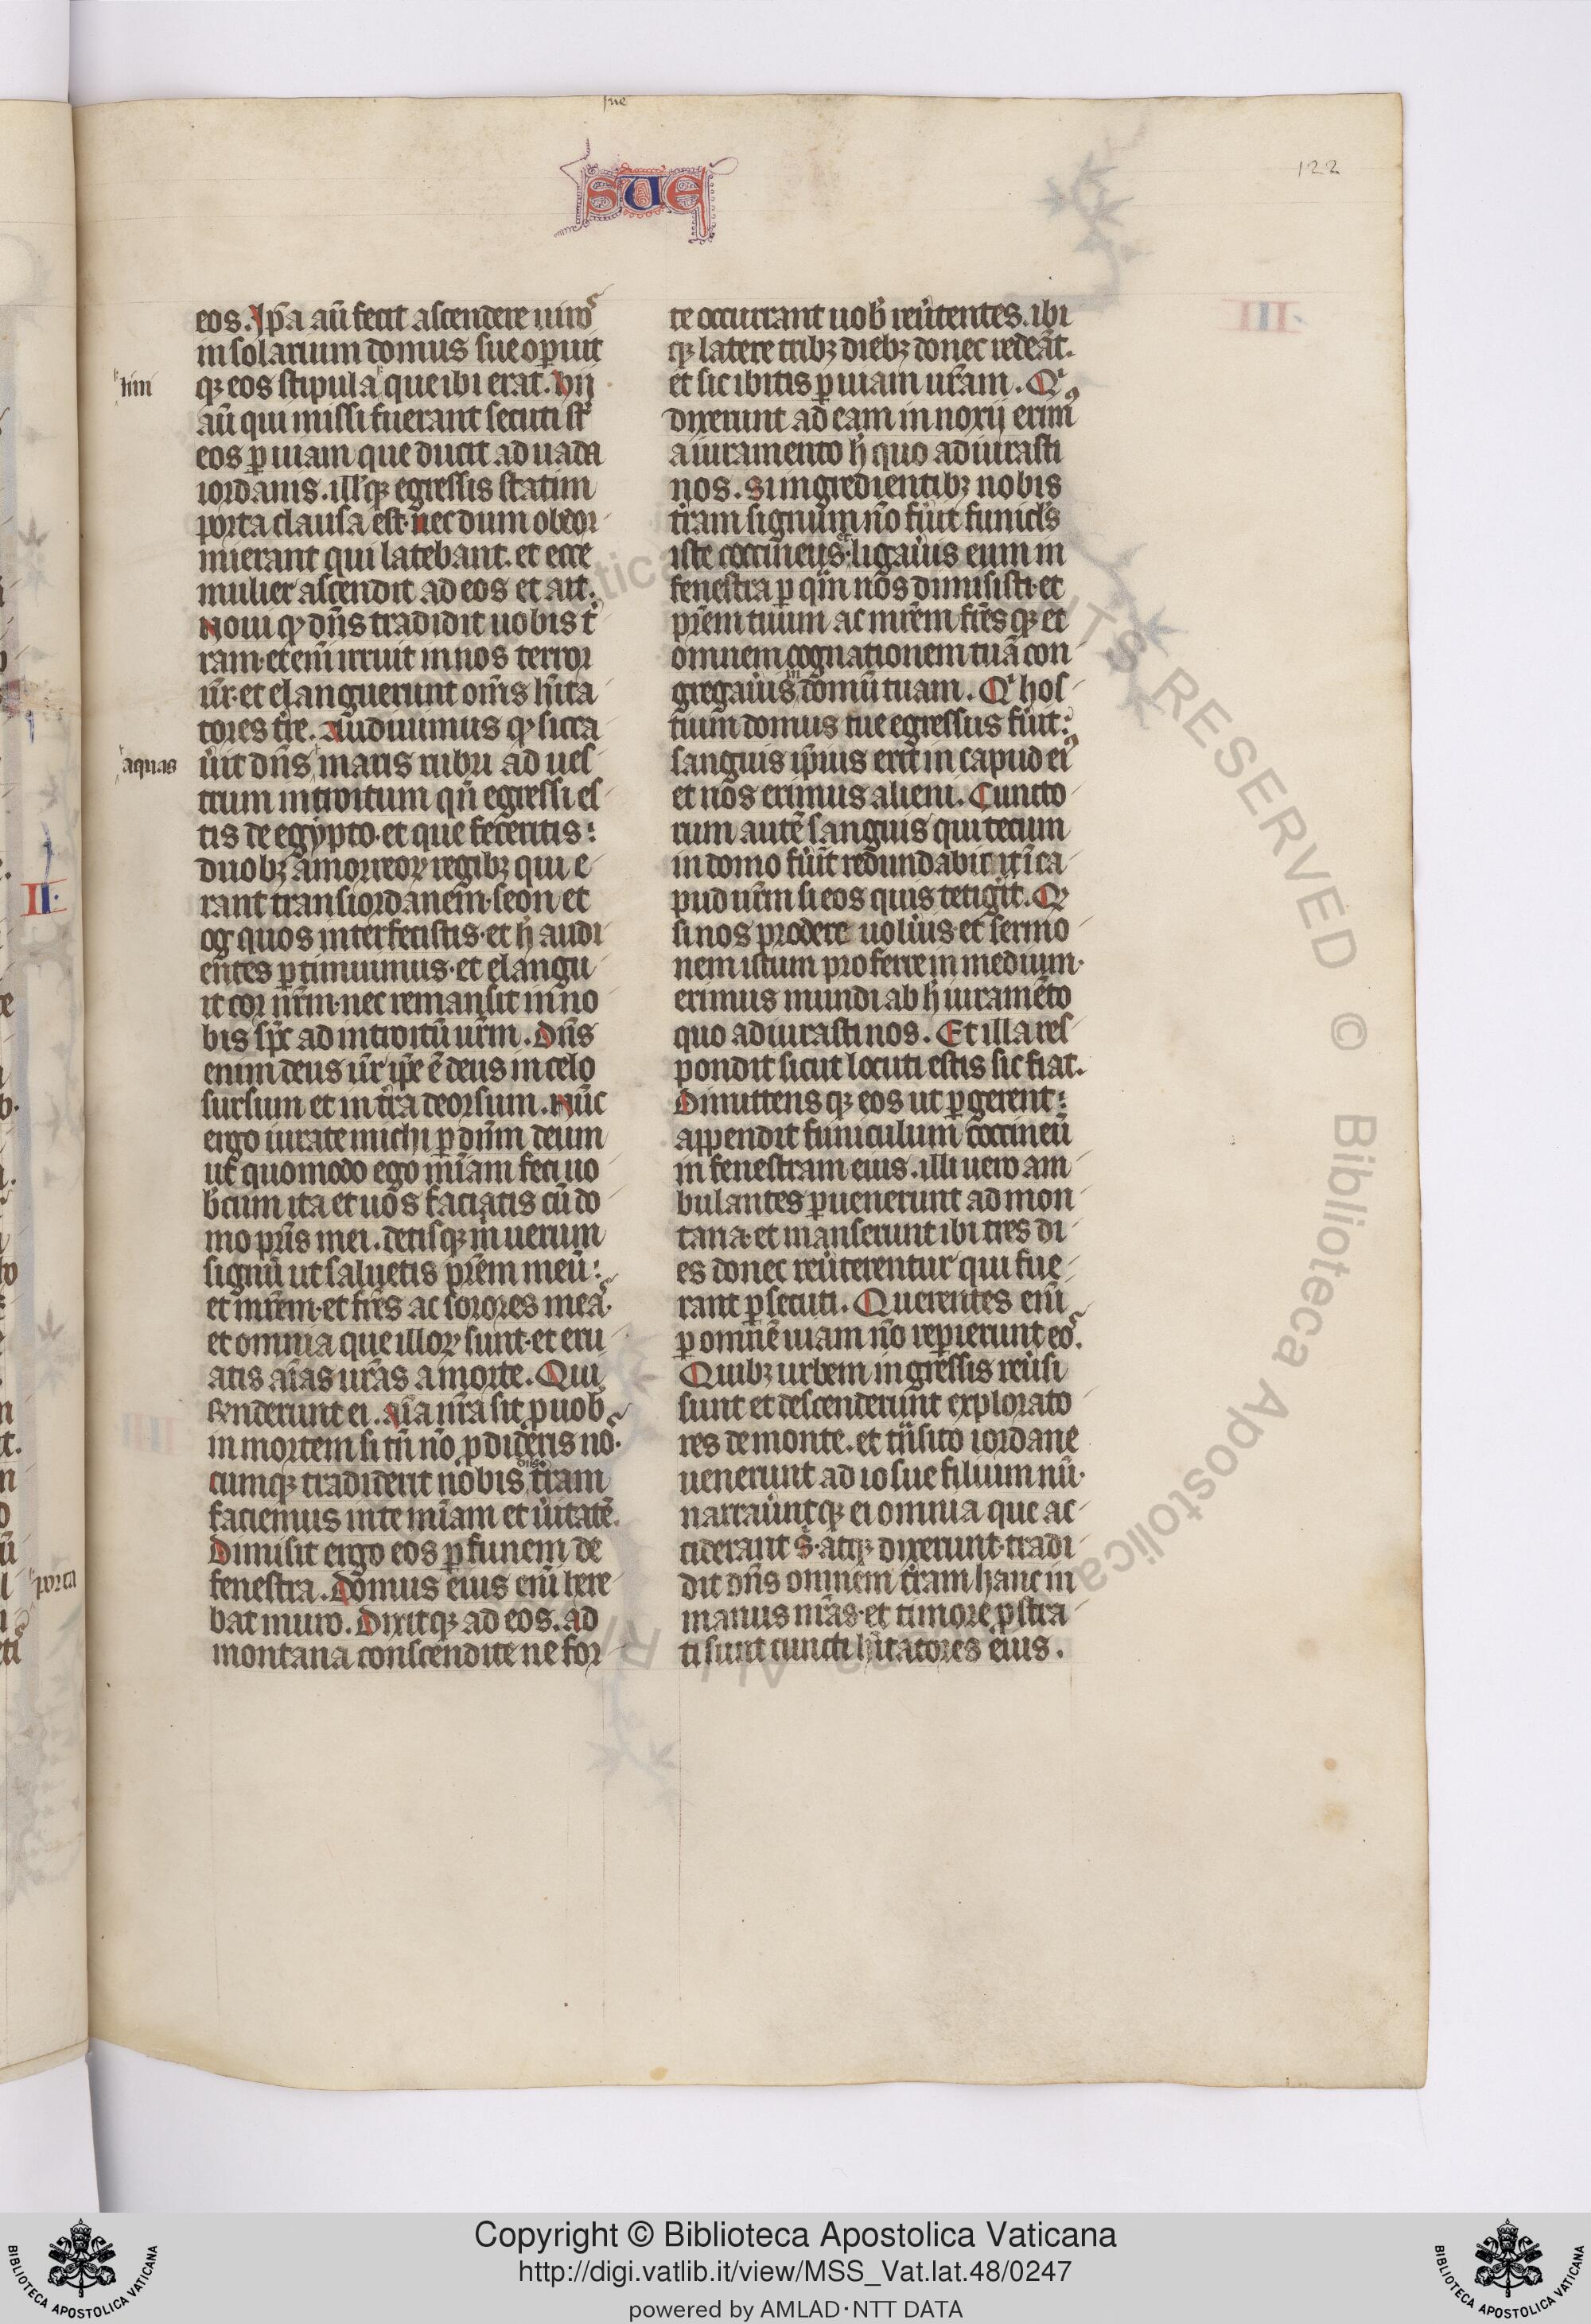 sue
122
eos. Ip̄a aū fecit ascendere uiros
in solarium domus sue operuit
lini
qꝫ eos stipula que ibi erat. hij
aū qui missi fuerant secuti st̄
eos ꝑ uiam que ducit ad uada
iordanis. illisqꝫ egressis statim
porta clausa est. nec dum obdor
mierant qui latebant. et ecce
mulier ascendit ad eos et ait.
Noui ꝙ dn̄s tradidit uobis t̓
ram. etem̄ irruit in nos terror
ur̄. et elanguerunt om̄s hīta
tores tr̄e. Audiuimus ꝙ sicca
aquas
uit dn̄s maris rubri ad ues
trum introitum qn̄ egressi es
tis de egypto. et que feceritis:
duobꝫ amorreoꝝ regibꝫ qui e
rant trans iordanem. seon et
og quos interfecistis. et h̓ audi
entes ꝑtimuimus. et elangu
it cor nr̄m. nec remansit in no
bis sp̄c ad introitū ur̄m. Dn̄s
enim deus ur̄ ip̄e ē deus in celo
sursum et in tr̄a deorsum. Nūc
ergo iurate michi ꝑ dn̄m deum
ut quomodo ego mīam feci uo
b̓cum ita et uos faciatis cū do
mo pr̄is mei. detisqꝫ m̓ uerum
signū ut saluetis pr̄em meū:
et mr̄em. et fr̄es ac sorores meas.
et omnia que illoꝝ sunt. et eru
atis aīas ur̄as a morte. Qui
rn̄derunt ei. aīa nr̄a sit ꝓ uob̓
in mortem si tn̄ nō ꝓdideris nos.
cumqꝫ tradiderit nobis dn̄s tr̄am
faciemus in te mīam et ūitatē.
Dimisit ergo eos ꝑ funem de
fenestra. Domus eius eni̅ here
bat muro. Dixitqꝫ ad eos. ad
montana conscendite ne for
te occurrant uob̓ reūtentes. ibi
qꝫ latere tribꝫ diebꝫ donec redeāt.
et sic ibitis ꝑ uiam ur̄am. Qi
dixerunt ad eam in noxij erimꝰ
a iuramento h̓ quo adiurasti
nos. Si ingredientibꝫ nobis
tr̄am signum nō fūit funicl̓s
iste coccineus. et ligaūis eum in
fenestra ꝑ q̄m nos dimisisti. et
pr̄em tuum ac mr̄em fr̄esqꝫ et
omnem cognationem tuā con
gregaūis in domū tuam. Qi hos
tium domus tue egressus fūit:
sanguis ip̄ius erit in capud eiꝰ
et nos erimus alieni. Cuncto
rum autē sanguis qui tecum
in domo fūit redundabit in ca
pud ur̄m si eos quis tetigit. Qꝫ
si nos prodere uolūis. et sermo
nem istum proferre in medium.
erimus mundi ab h̓ iuramēto
quo adiurasti nos. Et illa res
pondit sicut locuti estis sic fiat.
Dimittensqꝫ eos ut ꝑgerent:
appendit funiculum coccineū
in fenestram eius. illi uero am
bulantes ꝑuenerunt ad mon
tana. et manserunt ibi tres di
es donec reūterentur qui fue
rant ꝑsecuti. Querentes eni̅
ꝑ omnē uiam nō repierunt eos.
Quibꝫ urbem ingressis reūsi
sunt et descenderunt explorato
res de monte. et tn̄sito iordane
uenerunt ad iosue filium nū.
narraūuntqꝫ ei omnia que ac
ciderant s̓. atqꝫ dixerunt. tradi
porta
dit dn̄s omnem tr̄am hanc in
manus nr̄as. et timore ꝓstra
ti sunt cuncti hītatores eius.
II.
Copyright © Biblioteca Apostolica Vaticana
http://digi.vatlib.it/view/MSS_Vat.lat.48/0247
powered by AMLAD·NTT DATA
BIBLIOTECA APOSTOLICA VATICANA
BIBLIOTECA APOSTOLICA VATICANA